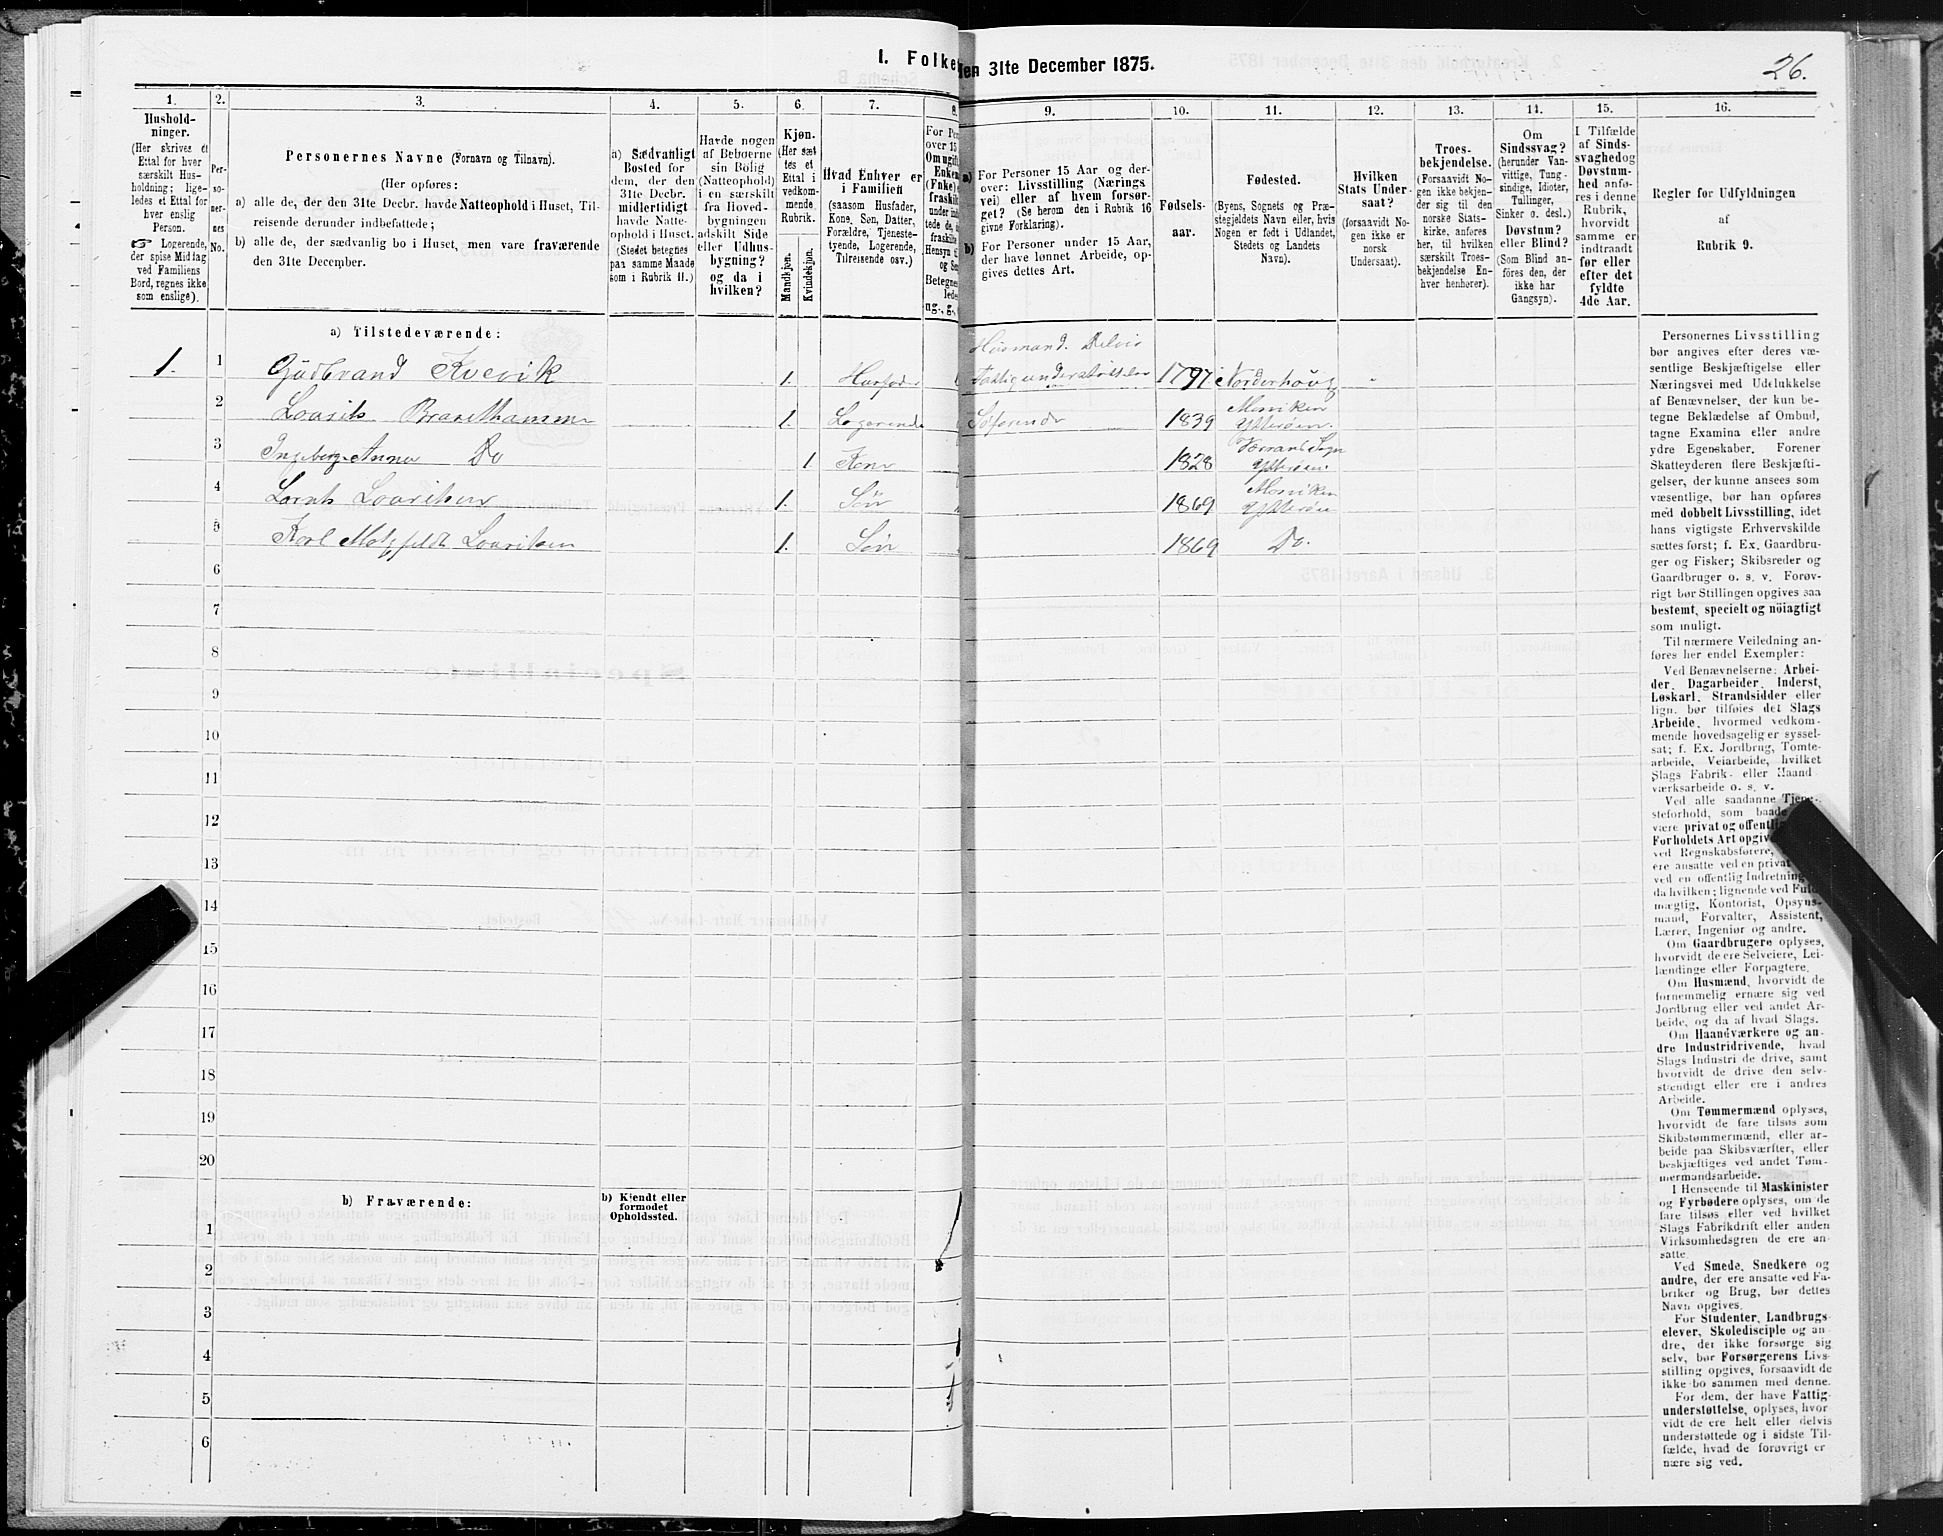 26.
I. Folke
den 31te December 1875.
1. 2. 3. 4. 5. 6. 7. 8. 9. 10. 11. 12. 13. 14. 15. 16.
Hushold-
ninger.
(Her skrives et
Ettal for hver
særskilt Hus-
holdning; lige-
ledes et Ettal for
hver enslig
Person.
☞ Logerende,
der spise Middag
ved Familiens
Bord, regnes ikke
som enslige).
Per-
so-
ner-
nes
No.
Personernes Navne (Fornavn og Tilnavn).
(Her opføres:
a) alle de, der den 31te Decbr. havde Natteophold i Huset, Til-
reisende derunder indbefattede;
b) alle de, der sædvanlig bo i Huset, men vare fraværende
den 31te December.
a) Sædvanligt
Bosted for
dem, der den
31te Decbr.
midlertidigt
havde Natte-
ophold i Huset.
(Stedet betegnes
paa samme Maade
som i Rubrik 11.)
Havde nogen
af Beboerne
sin Bolig
(Natteophold)
i en særskilt
fra Hoved-
bygningen
adskilt Side
eller Udhus-
bygning?
og da i
hvilken?
Kjøn.
(Her sæt
tes et
Ettal i
vedkom-
mende
Rubrik.
Mandkjøn.
Kvindekjøn.
Hvad Enhver er
i Familien
(saasom Husfader,
Kone, Søn, Datter,
Forældre, Tjeneste-
tyende, Logerende,
Tilreisende osv.)
For Per
over 15
Omugift
Enken
(Fnke) e
fraskilt
a) For Personer 15 Aar og der-
over: Livsstilling (Nærings
vei) eller af hvem forsør-
get? (Se herom den i Rubrik 16
givne Forklaring).
b) For Personer under 15 Aar,
der have lønnet Arbeide, op-
gives dettes Art.
Fødsels-
aar.
Fødested.
(Byens, Sognets og Præ-
stegjeldets Navn eller, hvis
Nogen er født i Udlandet,
Stedets og Landets
Navn).
Hvilken
Stats Under-
saat?
(forsaavidt No-
gen ikke er
norsk
Undersaat).
Troes-
bekjendelse.
(Forsaavidt No-
gen ikke bekjen-
der sig til den
norske Stats-
kirke, anføres
her, til hvilken
særskilt Troes-
bekjendelse En-
hver henhører).
Om
Sindssvag?
(herunder Van-
vittige, Tung-
sindige, Idioter,
Tullinger,
Sinker o. desl.)
Døvstum?
eller Blind?
(Som Blind an-
føres den, der
ikke har
Gangsyn).
I Tilfælde
af Sinds-
svaghedog
Døvstum-
hed anfø-
res i denne
Rubrik,
hvorvidt
samme er
indtraadt
før eller
efter det
fyldte
4de Aar.
Regler for Udfyldningen
af
Rubrik 9.
a) Tilstedeværende:
Husmand. Delvis
1. 1 Gudbrand Kvevik 1. Husfader Fattigunderstøttelse 1797 Norderhoug
2 Lourits Brauthammer 1. Logerende Søfarende 1839 Mosviken Ytterøen.
3 Ingeborg Anna Do 1 Kone 1828 Vorran Sogn Ytterøen.
4 Lornts Louritsen 1. Søn 1869 Mosviken Ytterøen
5 Karl Motzfeldt Louritsen 1. Søn 1869 Do.
6
7
8
9
10
11
12
13
14
15
16
17
18
19
20
b) Fraværende:
b) Kjendt eller
formodet
Opholdssted.
1
2
3
4
5
6
Personernes Livsstilling
bør angives efter deres væ-
sentlige Beskjæftigelse eller
Næringsvei med Udelukkelse
af Benævnelser, der kun be-
tegne Beklædelse af Ombud,
tagne Examina eller andre
ydre Egenskaber. Forener
Skatteyderen flere Beskjæfti-
gelser, der kunne ansees som
væsentlige, bør han opføres
med dobbelt Livsstilling, idet
hans vigtigste Erhvervskilde
sættes først; f. Ex. Gaardbru-
ger og Fisker; Skibsreder og
Gaardbruger o. s. v. Forøv-
rigt bør Stillingen opgives saa
bestemt, specielt og nöiagtigt
som muligt.
Til nærmere Veiledning an-
føres her endel Exempler:
Ved Benævnelserne: Arbei-
der, Dagarbeider, Inderst,
Løskarl, Strandsidder eller
lign. bør tilføies det Slags
Arbeide, hvormed vedkom-
mende hovedsagelig er syssel-
sat; f. Ex. Jordbrug, Tomte-
arbeide, Veiarbeide, hvilket
Slags Fabrik- eller Haand
værksarbeide o. s. v.
Ved alle saadanne Tjene-
steforhold, som baade
være privat og offentlig
Forholdets Art opgives
ved Regnskabsførere,
ere ansatte ved en privat
ved en offentlig Indretning
da hvilken; lignende ved Fuld
mægtig, Kontorist, Opsyns-
mand, Forvalter, Assistent,
Lærer, Ingeniør og andre.
Om Gaardbrugere oplyses,
hvorvidt de ere Selveiere, Lei-
lændinge eller Forpagtere.
Om Husmænd, hvorvidt de
fornemmelig ernære sig ved
Jordbrug eller ved andet Ar-
beide, og da af hvad Slags.
Om Haandværkere og an-
dre Industridrivende, hvad
Slags Industri de drive, samt
hvorvidt de drive den selv-
stændigt eller ere i andres
Arbeide.
Om Tømmermænd oplyses,
hvorvidt de fare tilsøs som
Skibstømmermænd, eller ar-
beide paa Skibsværfter, eller
beskjæftiges ved andet Tøm-
mermandsarbeide.
I Henseende til Maskinister
og Fyrbødere oplyses, om de
fare tilsøs eller ved hvilket
Slags Fabrikdrift eller anden
Virksomhedsgren de ere an-
satte.
Ved Smede, Snedkere og
andre, der ere ansatte ved Fa-
briker og Brug, bør dettes
Navn opgives.
For Studenter, Landbrugs-
elever, Skoledisciple og an-
dre, der ikke forsørge sig
selv, bør Forsørgerens Livs-
stilling opgives, forsaavidt de
ikke bo sammen med denne.
For dem, der have Fattig-
understøttelse, oplyses, hvor
vidt de ere helt eller delvis
understøttede og i sidste Til-
fælde, hvad de forøvrigt er
nære sig ved.